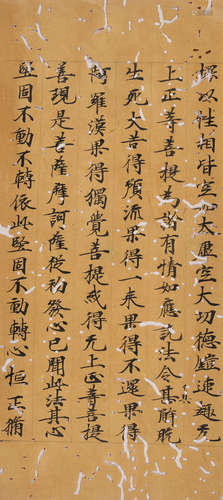 輕以性相皆空心大悲空大功德鎧速趣無
上正等菩提為諸有情如應說法令其解脫
生死大苦得預流果得一來果得不還果得
阿羅漢果得獨覺菩提或得无上正等菩提
善現是菩薩摩訶薩從初發心已聞此法其心
堅固不動不轉依此堅固不動轉心恒正脩